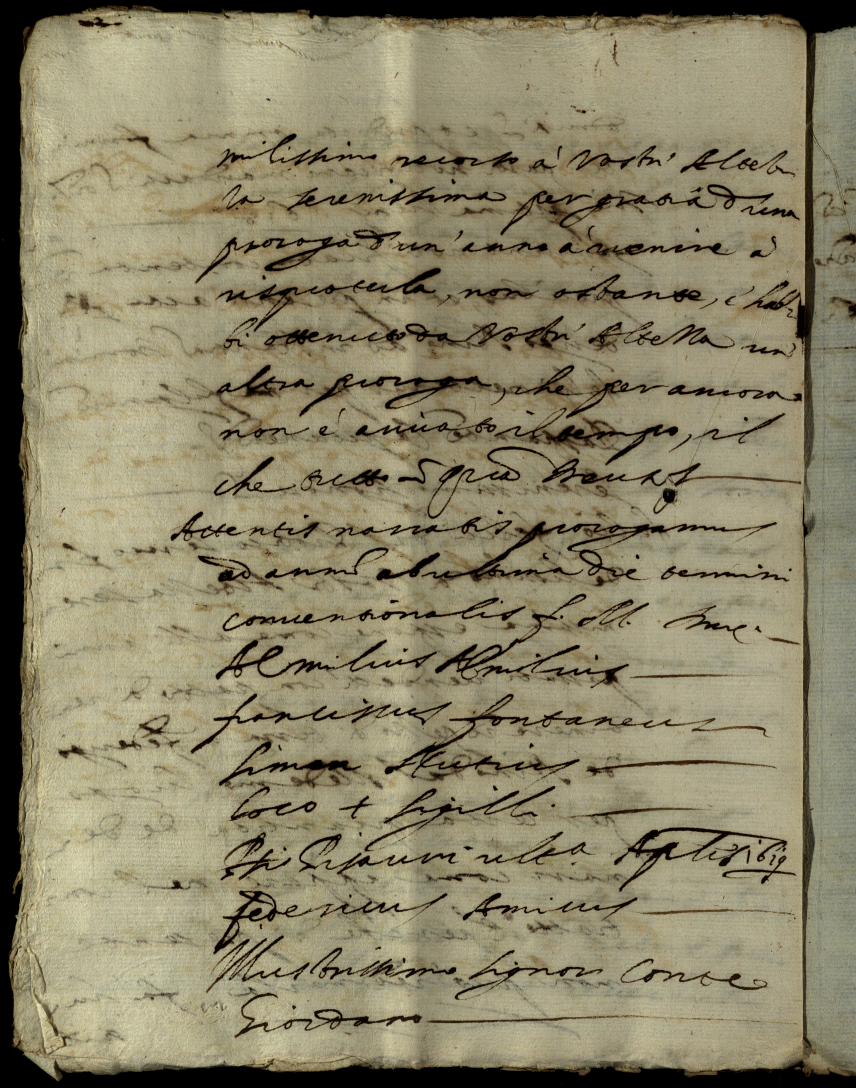 milissimo recorso à Vostr' Altez
za serenissima per gratia d'una
proroga d'un' anno à uenire à
rispoterla, non ostante, c' hab
bi ottenuto da Vostr' Altezza un'
altra proroga, che per ancora
non è ariuato il tempo, il
che tutto
Attentis narratis prorogamus
ad annũ ab ultima die termini
conuentionalis
Æmilius Æmilius
franciscus fontaneus
Simon Mutius
Loco + Sigilli
Pisauri ulta Aplis 1619
federicus Amicus
Illustrissimo Signor Conte
Giordano